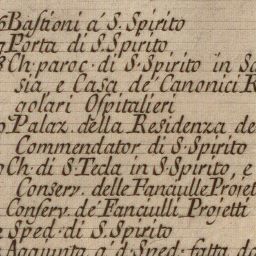 6 Bastioni a S. Spirito
7 Porta di S. Spirito
8 Ch. paroc. di S. Spirito in
sia, e Casa de' Canonici
golari Ospitalieri
Palaz. della Residenza
Commendator di S. Spirito
Ch. di S. Tecla in S. Spirito, e
Conserv. delle Fanciulle
Conserv. de' Fanciulli Projetti
Sped. di S. Spirito
Aggiunta a d. Sped. fatta